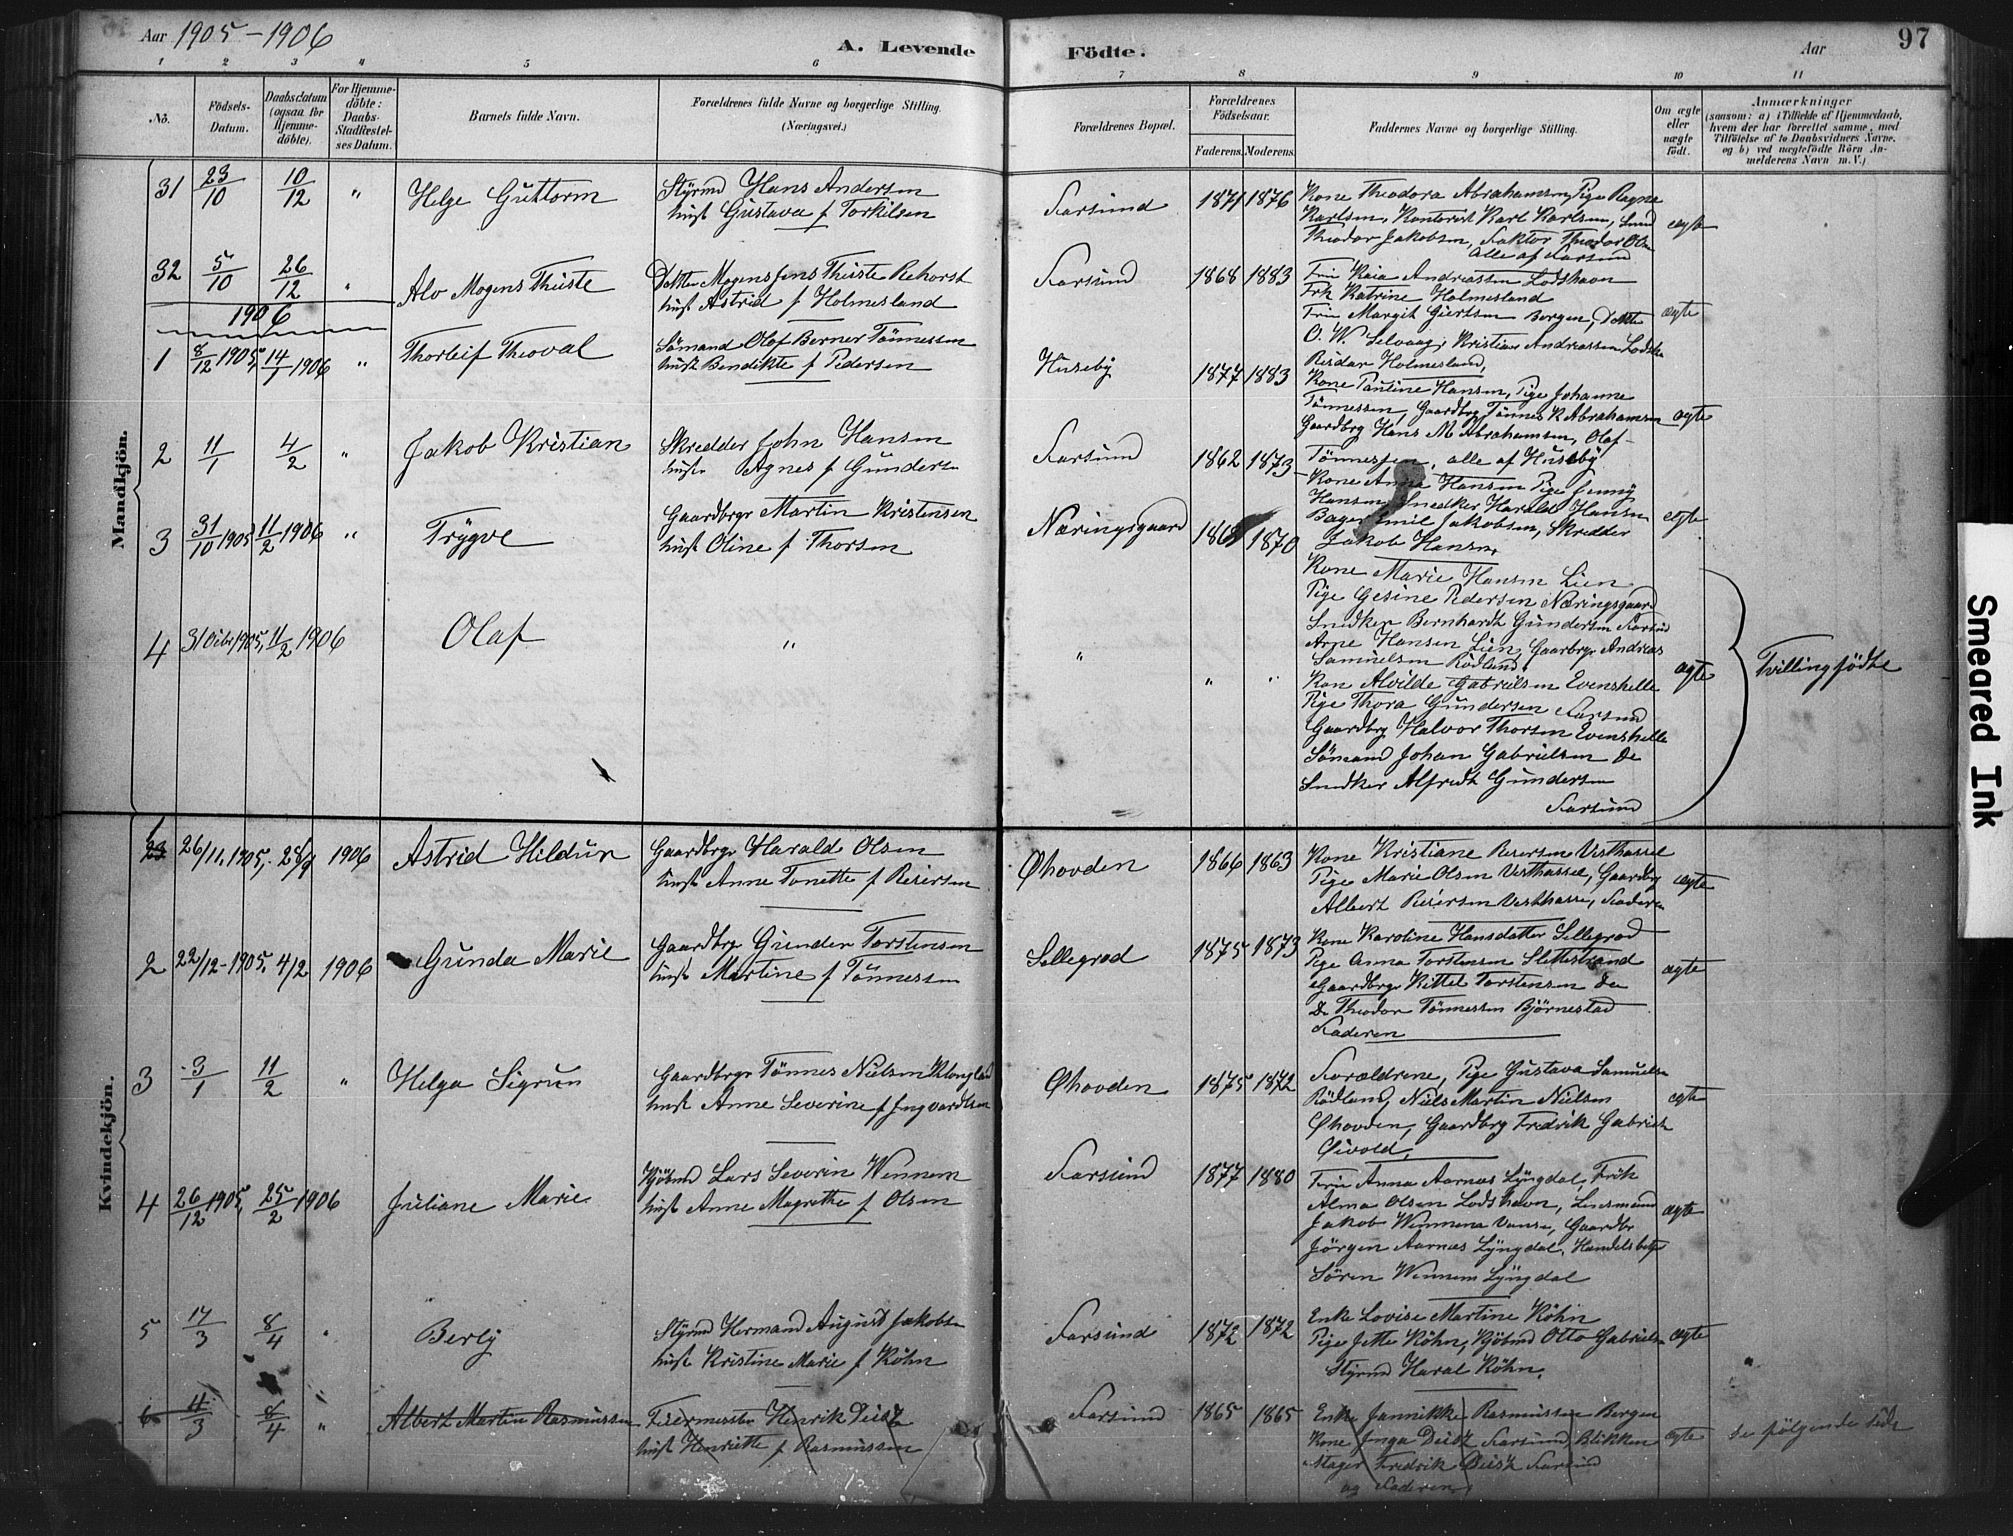 Aar 1905-1906
A. Levende
Födte.
Aar
97
1 2 3 4 5 6 7 8 9 10 11
No.
Födsels-
Datum.
Daabsdatum
(ogsaa for
Hjemme-
döbte).
For Hjemme-
döbte:
Daabs-
Stadfæstel-
ses Datum.
Barnets fulde Navn.
Forældrenes fulde Navne og borgerlige Stilling.
(Næringsvei.)
Forældrenes Bopæl.
Forældrenes
Födselsaar.
Faderens. Moderens.
Faddernes Navne og borgerlige Stilling.
Om ægte
eller
uægte
födt.
Anmærkninger
(saasom: a) i Tilfælde af Hjemmedaab,
hvem der har forrettet samme, med
Tilföielse af to Daabsvidners Navne,
og b) ved uægtefödte Börn An-
melderens Navn m. V.)
Mandkjön.
31 23/10 10/12 " Helge Guttorm
Styrmd Hans Andersen
hust Gustava f Torkilsen
Farsund 1871 1876
Kone Theodora Abrahamsen, Pige Ragna
Karlsen, Kontorist Karl Karlsen, Smed
Theodor Jakobsen, Faktor Theodor Olsen
alle af Farsund
ægte
32 5/10 26/12 " Alv Mogens Theiste
Mogens Jens Theiste Rehorst
hust Astrid f Holmesland
Farsund 1868 1883
Fru Kaia Andreassen Lodshavn
Frk Katrine Holmesland
Fru Margit Giertsen Bergen,
O. W. Selvaag, Kristian Andreassen
Reidar Holmesland,
ægte
1906
1 8/12 1905, 14/1 1906 " Thorleif Theoval
Sömand Olaf Berner Tönnessen
hust Bendikte f Pedersen
Huseby 1877 1883
Kone Pauline Hansen, Pige Johanne
Tönnessen, Gaardbrg Tönnes K Abrahamsen
Gaardbrg Hans M Abrahamsen, Olaf
Tönnessen, alle af Huseby
ægte
2 11/1 4/2 " Jakob Kristian
Skredder John Hansen
hust Agnes f Gundersn
Farsund 1862 1873
Kone Anna Hansen Pige Jenny
Hansen, Snedker Harald Hansen
Bager Emil Jakobsen, Skredder
Jakob Hansen,
ægte
3 31/10 1905 11/2 1906 " Trygve
Gaardbrgr Martin Kristensen
hust Oline f Thorsen
Næringsgaard 1870
Kone Marie Hansen Lien
Pige Gesine Pedersen Næringsgaard
Snedker Bernhardt Gundersen Farsund
Arne Hansen Lien, Gaardbrgr Andreas
Samuelsen Rödland,
4 31 Octbr 1905, 11/2 1906 Olaf
" " " "
Kon Alvilde Gabrielsen Evenshelle
Pige Thora Gundersen Farsund
Gaardbrg Halvor Thorsen Evenshelle
Sömand Johan Gabrielsen Do
Snedker Alfredt Gundersen
Farsund
ægte
Tvillingfödte
Kvindekjön.
1 26/11, 1905, 28/1 1906 Astrid Hildur
Gaardbrgr Harald Olsen
hust Anne Tonette f Reiersen
Øhovden 1866 1863
Kone Kristiane Reiersen Vesthassel
Pige Marie Olsen Vesthassel, Gaardbrg
Albert Reiersen Vesthassel, Faderen
ægte
2 22/12-1905, 4/2 1906 Gunda Marie
Gaardbrgr Gunder Torstensen
hust Martine f Tönnessen
Sellegrod 1875 1873
Kone Karoline Hansdatter Sellegrod
Pige Anna Torstensen Slettestrand
Gaardbrgr Kittel Torstensen Do
Do Theodor Tönnessen Björnestad
Faderen
ægte
3 3/1 11/2 " Helga Sigrun
Gaardbrgr Tönnes Nielsen
hust Anne Severine f Ingvardtsen
Øhovden 1875 1872
Forældrene, Pige Gustava Samuelsn
Rödland, Niels Martin Nielsen
Øhovden, Gaardbrg Fredrik Gabriels
ægte
4 26/12 1905, 25/2 1906 Juliane Marie
Kjöbmd Lars Severin Wennem
hust Anne Magrethe f Olsen
Farsund 1877 1880
Fru Anna Aarnæs Lyngdal, Frök
Alma Olsen Lodshavn, Lensmand
Jakob Wennem Vanse, Gaardbr
Jörgen Aarnæs Lyngdal, Handelsbetj
Sören Wennem Lyngdal
ægte
5 17/3 8/4 " Berly
Styrmd Hermand August Jakobsn
hust Kristine Marie f Köhn
Farsund 1872 1872
Enke Lovise Martine Köhn
Pige Jette Köhn, Kjöbmd Otto Gabrielsn
Styrmd Haral Köhn.
ægte
6 4/3 8/4 " Albert Martin Rasmussen
Henrik Deisz
hust Henriette f Rasmussen
Farsund 1865 1865
Enke Jannikke Rasmussen Bergen
Kone Inga Deisz Farsund, Blikken
slager Fredrik Deisz Farsund
og Faderen,
ægte
Se fölgende Side
Smeared Ink